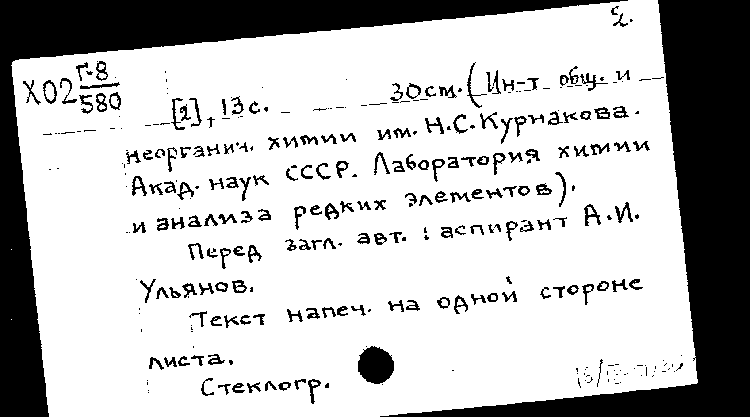 2.
Х02 Г-8/580
[2], 13с. 30см. (Ин-т общ. и
неорганич. химии им. Н.С.Курнакова.
Акад. наук СССР. Лаборатория химии
и анализа редких элементов).
Перед загл. авт.: аспирант А.И.
Ульянов.
Текст напеч. на одной стороне
листа.
Стеклогр.